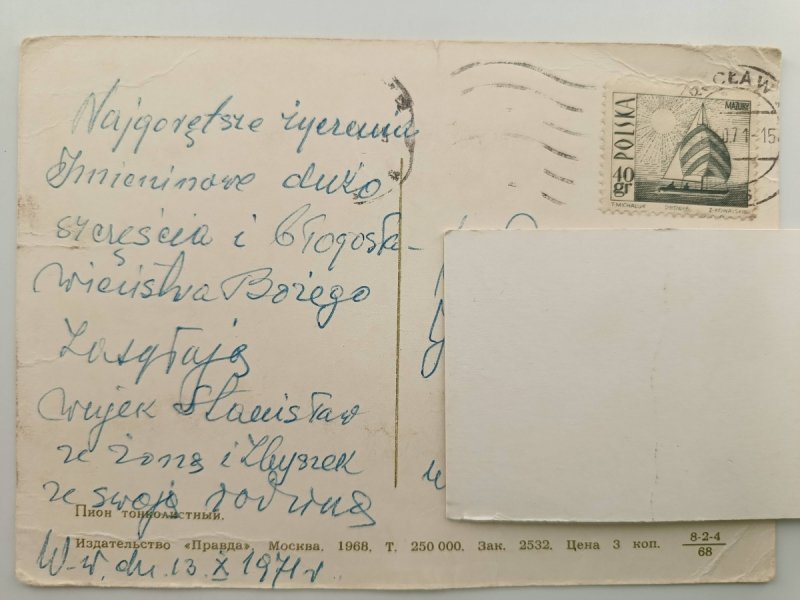 Najgorętsze życzenia
Imieninowe dużo
szczęścia i błogosła-
wieństwa Bożego
Zasyłają
wujek Stanisław
ze żoną i Zbyszek
ze swoją rodziną
Пион тонколистный.
Издательство «Правда». Москва. 1968. Т. 250 000. Зак. 2532. Цена 3 коп.
8-2-4
68
W-w. dn. 13.X 1971 r.
CŁAW
POLSKA
MAZURY
40
gr
T. MICHALUK
71-15